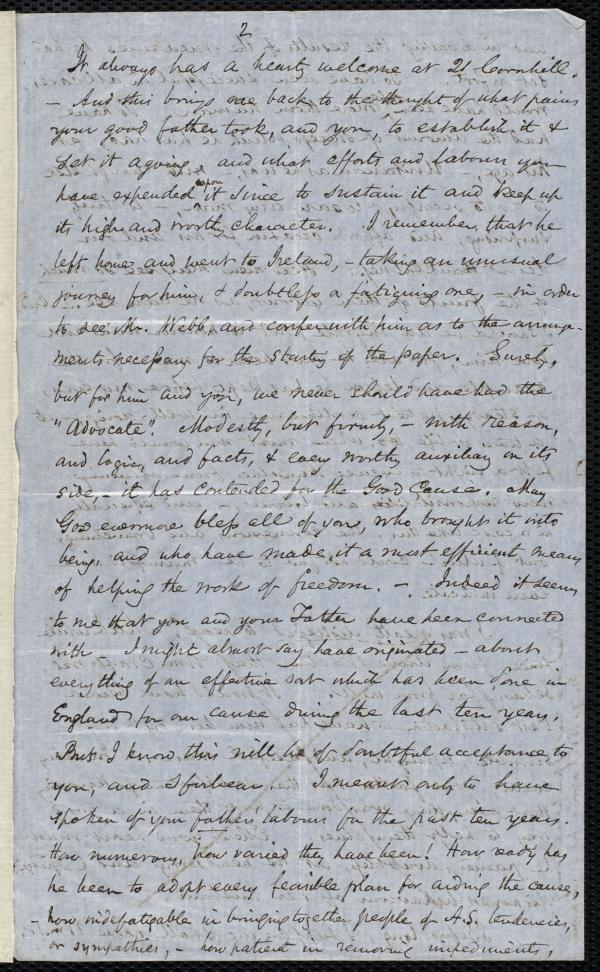 2
It always has a hearty welcome at 21 Cornhill.
- And this brings me back to the thought of what pains
your good father took, and you, to establish it &
set it agoing, and what efforts and labours you
have expended upon it since to sustain it and keep up
its high and worthy character. I remember, that he
left home and went to Ireland, - taking an unusual
journey for him, & doubtless a fatiguing one, - in order
to see Mr. Webb, and confer with him as to the arrange-
ments necessary for the starting of the paper. Surely,
but for him and you, we never should have had the
"Advocate". Modestly, but firmly, - with reason,
and logic, and facts, & every worthy auxiliary on its
side, - it has contended for the Good Cause. May
God evermore bless all of you, who brought it into
being, and who have made it a most efficient means
of helping the work of freedom. - Indeed it seems
to me that you and your Father have been connected
with - I might almost say have originated - about
everything of an effective sort which has been done in
England for our cause during the last ten years.
But I know this will be of doubtful acceptance to
you, and I forbear. I meant only to have
spoken of your father's labours for the past ten years.
How numerous, how varied they have been! How ready has
he been to adopt every feasible plan for aiding the cause,
- how indefatigable in bringing together people of A.S. tendencies,
or sympathies, - how patient in removing impediments,